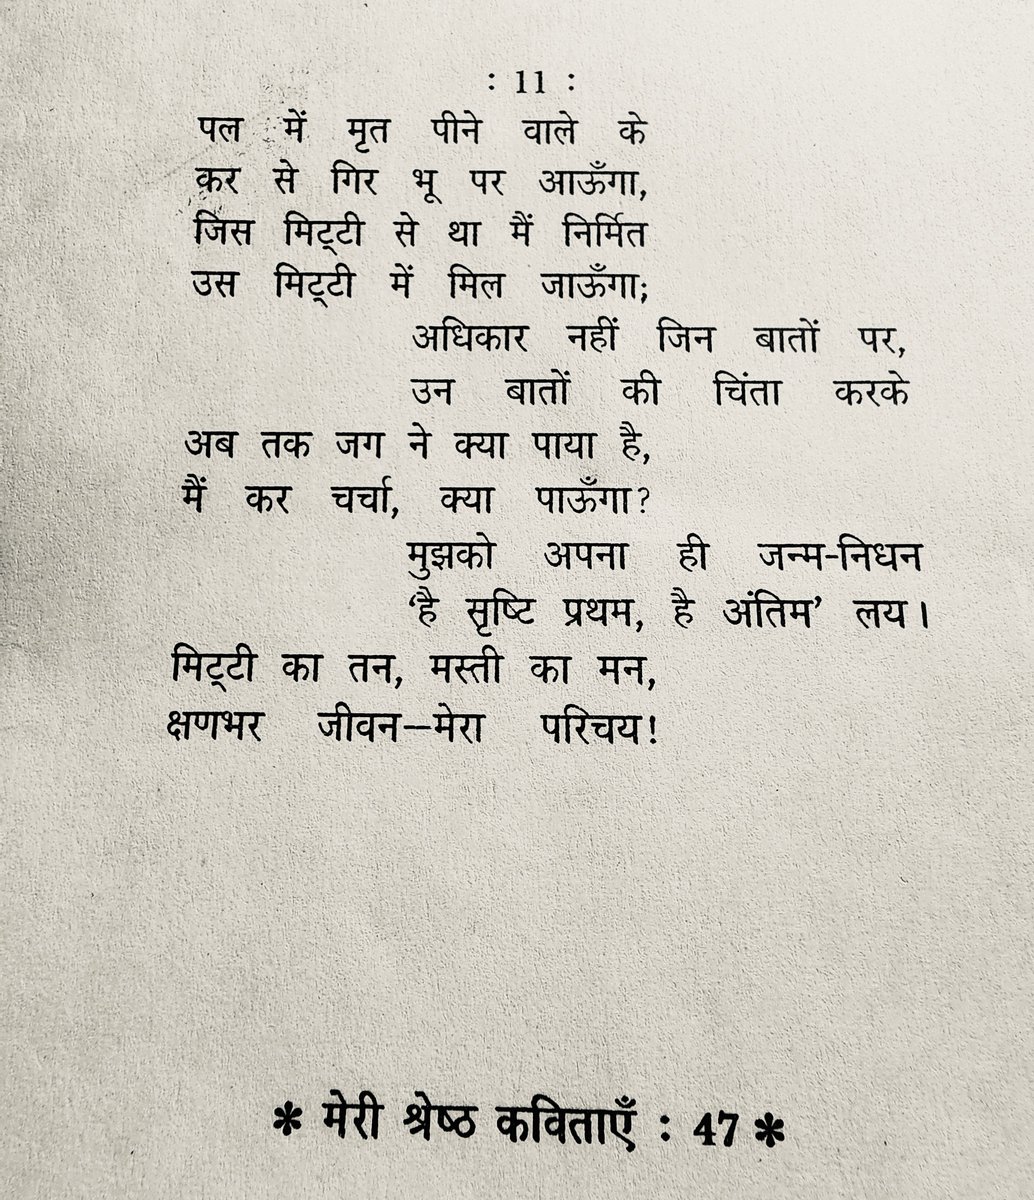 : 11 :
पल में मृत पीने वाले के
कर से गिर भू पर आऊँगा,
जिस मिट्टी से था मैं निर्मित
उस मिट्टी में मिल जाऊँगा;
अधिकार नहीं जिन बातों पर,
उन बातों की चिंता करके
अब तक जग ने क्या पाया है,
मैं कर चर्चा, क्या पाऊँगा?
मुझको अपना ही जन्म-निधन
‘है सृष्टि प्रथम, है अंतिम’ लय।
मिट्टी का तन, मस्ती का मन,
क्षणभर जीवन–मेरा परिचय!
* मेरी श्रेष्ठ कविताएँ : 47 *